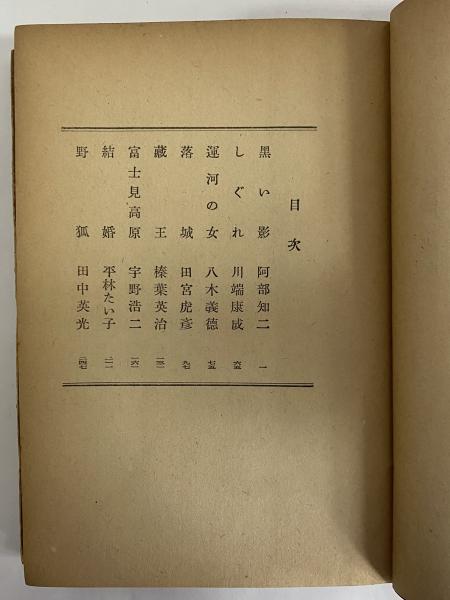 目次
黒い影 阿部知二 一
しぐれ 川端康成 六五
運河の女 八木義徳 七五
落城 田宮虎彦 九七
蔵王 榛葉英治 一三一
富士見高原 宇野浩二 一六一
結婚 平林たい子 二一一
野狐 田中英光 二四七